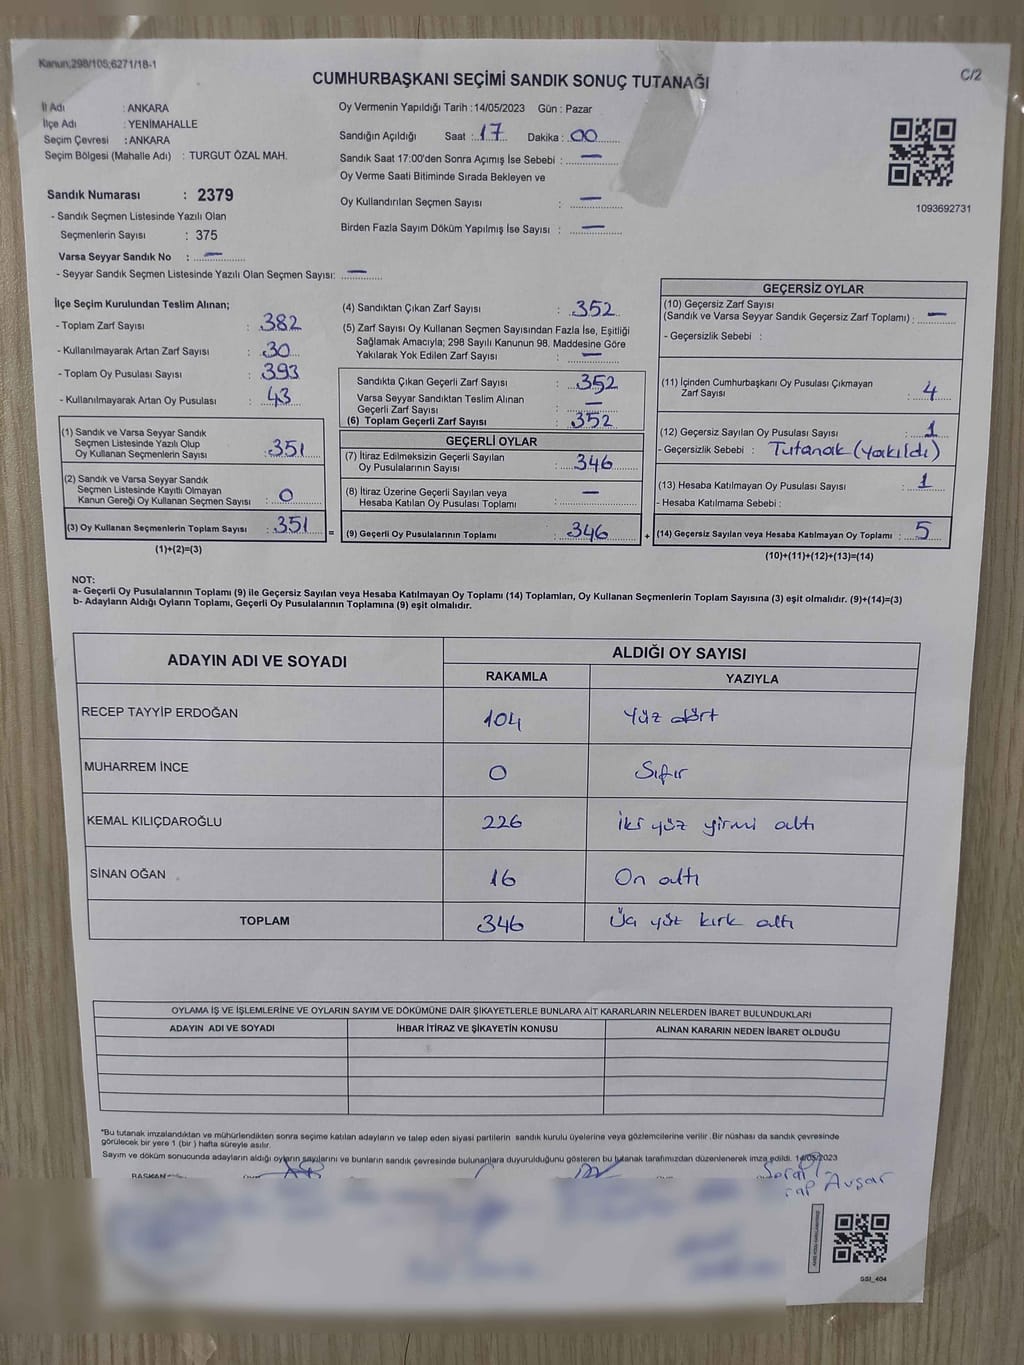 Kanun;298/105;6271/18-1
C/2
CUMHURBAŞKANI SEÇİMİ SANDIK SONUÇ TUTANAĞI
İl Adı : ANKARA
İlçe Adı : YENİMAHALLE
Seçim Çevresi : ANKARA
Seçim Bölgesi (Mahalle Adı) : TURGUT ÖZAL MAH.
Oy Vermenin Yapıldığı Tarih : 14/05/2023 Gün : Pazar
Sandığın Açıldığı Saat : 17 Dakika : 00
Sandık Saat 17:00'den Sonra Açımış İse Sebebi : —
Oy Verme Saati Bitiminde Sırada Bekleyen ve
Oy Kullandırılan Seçmen Sayısı : —
Birden Fazla Sayım Döküm Yapılmış İse Sayısı : —
1093692731
Sandık Numarası : 2379
- Sandık Seçmen Listesinde Yazılı Olan
Seçmenlerin Sayısı : 375
Varsa Seyyar Sandık No : —
- Seyyar Sandık Seçmen Listesinde Yazılı Olan Seçmen Sayısı: —
İlçe Seçim Kurulundan Teslim Alınan;
- Toplam Zarf Sayısı : 382
- Kullanılmayarak Artan Zarf Sayısı : 30
- Toplam Oy Pusulası Sayısı : 393
- Kullanılmayarak Artan Oy Pusulası : 43
(1) Sandık ve Varsa Seyyar Sandık
Seçmen Listesinde Yazılı Olup
Oy Kullanan Seçmenlerin Sayısı : 351
(2) Sandık ve Varsa Seyyar Sandık
Seçmen Listesinde Kayıtlı Olmayan
Kanun Gereği Oy Kullanan Seçmen Sayısı : 0
(3) Oy Kullanan Seçmenlerin Toplam Sayısı : 351
(1)+(2)=(3)
(4) Sandıktan Çıkan Zarf Sayısı : 352
(5) Zarf Sayısı Oy Kullanan Seçmen Sayısından Fazla İse, Eşitliği
Sağlamak Amacıyla; 298 Sayılı Kanunun 98. Maddesine Göre
Yakılarak Yok Edilen Zarf Sayısı : —
Sandıkta Çıkan Geçerli Zarf Sayısı : 352
Varsa Seyyar Sandıktan Teslim Alınan
Geçerli Zarf Sayısı : —
(6) Toplam Geçerli Zarf Sayısı : 352
GEÇERLİ OYLAR
(7) İtiraz Edilmeksizin Geçerli Sayılan
Oy Pusulalarının Sayısı : 346
(8) İtiraz Üzerine Geçerli Sayılan veya
Hesaba Katılan Oy Pusulası Toplamı : —
= (9) Geçerli Oy Pusulalarının Toplamı : 346
GEÇERSİZ OYLAR
(10) Geçersiz Zarf Sayısı
(Sandık ve Varsa Seyyar Sandık Geçersiz Zarf Toplamı) : —
- Geçersizlik Sebebi :
(11) İçinden Cumhurbaşkanı Oy Pusulası Çıkmayan
Zarf Sayısı : 4
(12) Geçersiz Sayılan Oy Pusulası Sayısı : 1
- Geçersizlik Sebebi : Tutanak (yakıldı)
(13) Hesaba Katılmayan Oy Pusulası Sayısı : 1
- Hesaba Katılmama Sebebi :
+ (14) Geçersiz Sayılan veya Hesaba Katılmayan Oy Toplamı : 5
(10)+(11)+(12)+(13)=(14)
NOT:
a- Geçerli Oy Pusulalarının Toplamı (9) ile Geçersiz Sayılan veya Hesaba Katılmayan Oy Toplamı (14) Toplamları, Oy Kullanan Seçmenlerin Toplam Sayısına (3) eşit olmalıdır. (9)+(14)=(3)
b- Adayların Aldığı Oyların Toplamı, Geçerli Oy Pusulalarının Toplamına (9) eşit olmalıdır.
ADAYIN ADI VE SOYADI ALDIĞI OY SAYISI
RAKAMLA YAZIYLA
RECEP TAYYİP ERDOĞAN 104 Yüz dört
MUHARREM İNCE 0 Sıfır
KEMAL KILIÇDAROĞLU 226 İki yüz yirmi altı
SİNAN OĞAN 16 On altı
TOPLAM 346 Üç yüz kırk altı
OYLAMA İŞ VE İŞLEMLERİNE VE OYLARIN SAYIM VE DÖKÜMÜNE DAİR ŞİKAYETLERLE BUNLARA AİT KARARLARIN NELERDEN İBARET BULUNDUKLARI
ADAYIN ADI VE SOYADI İHBAR İTİRAZ VE ŞİKAYETİN KONUSU ALINAN KARARIN NEDEN İBARET OLDUĞU
*Bu tutanak imzalandıktan ve mühürlendikten sonra seçime katılan adayların ve talep eden siyasi partilerin sandık kurulu üyelerine veya gözlemcilerine verilir. Bir nüshası da sandık çevresinde
görülecek bir yere 1 (bir ) hafta süreyle asılır.
Sayım ve döküm sonucunda adayların aldığı oyların sayılarını ve bunların sandık çevresinde bulunanlara duyurulduğunu gösteren bu tutanak tarafımızdan düzenlenerek imza edildi. 14/05/2023
BAŞKAN
Avşar
GSI_404